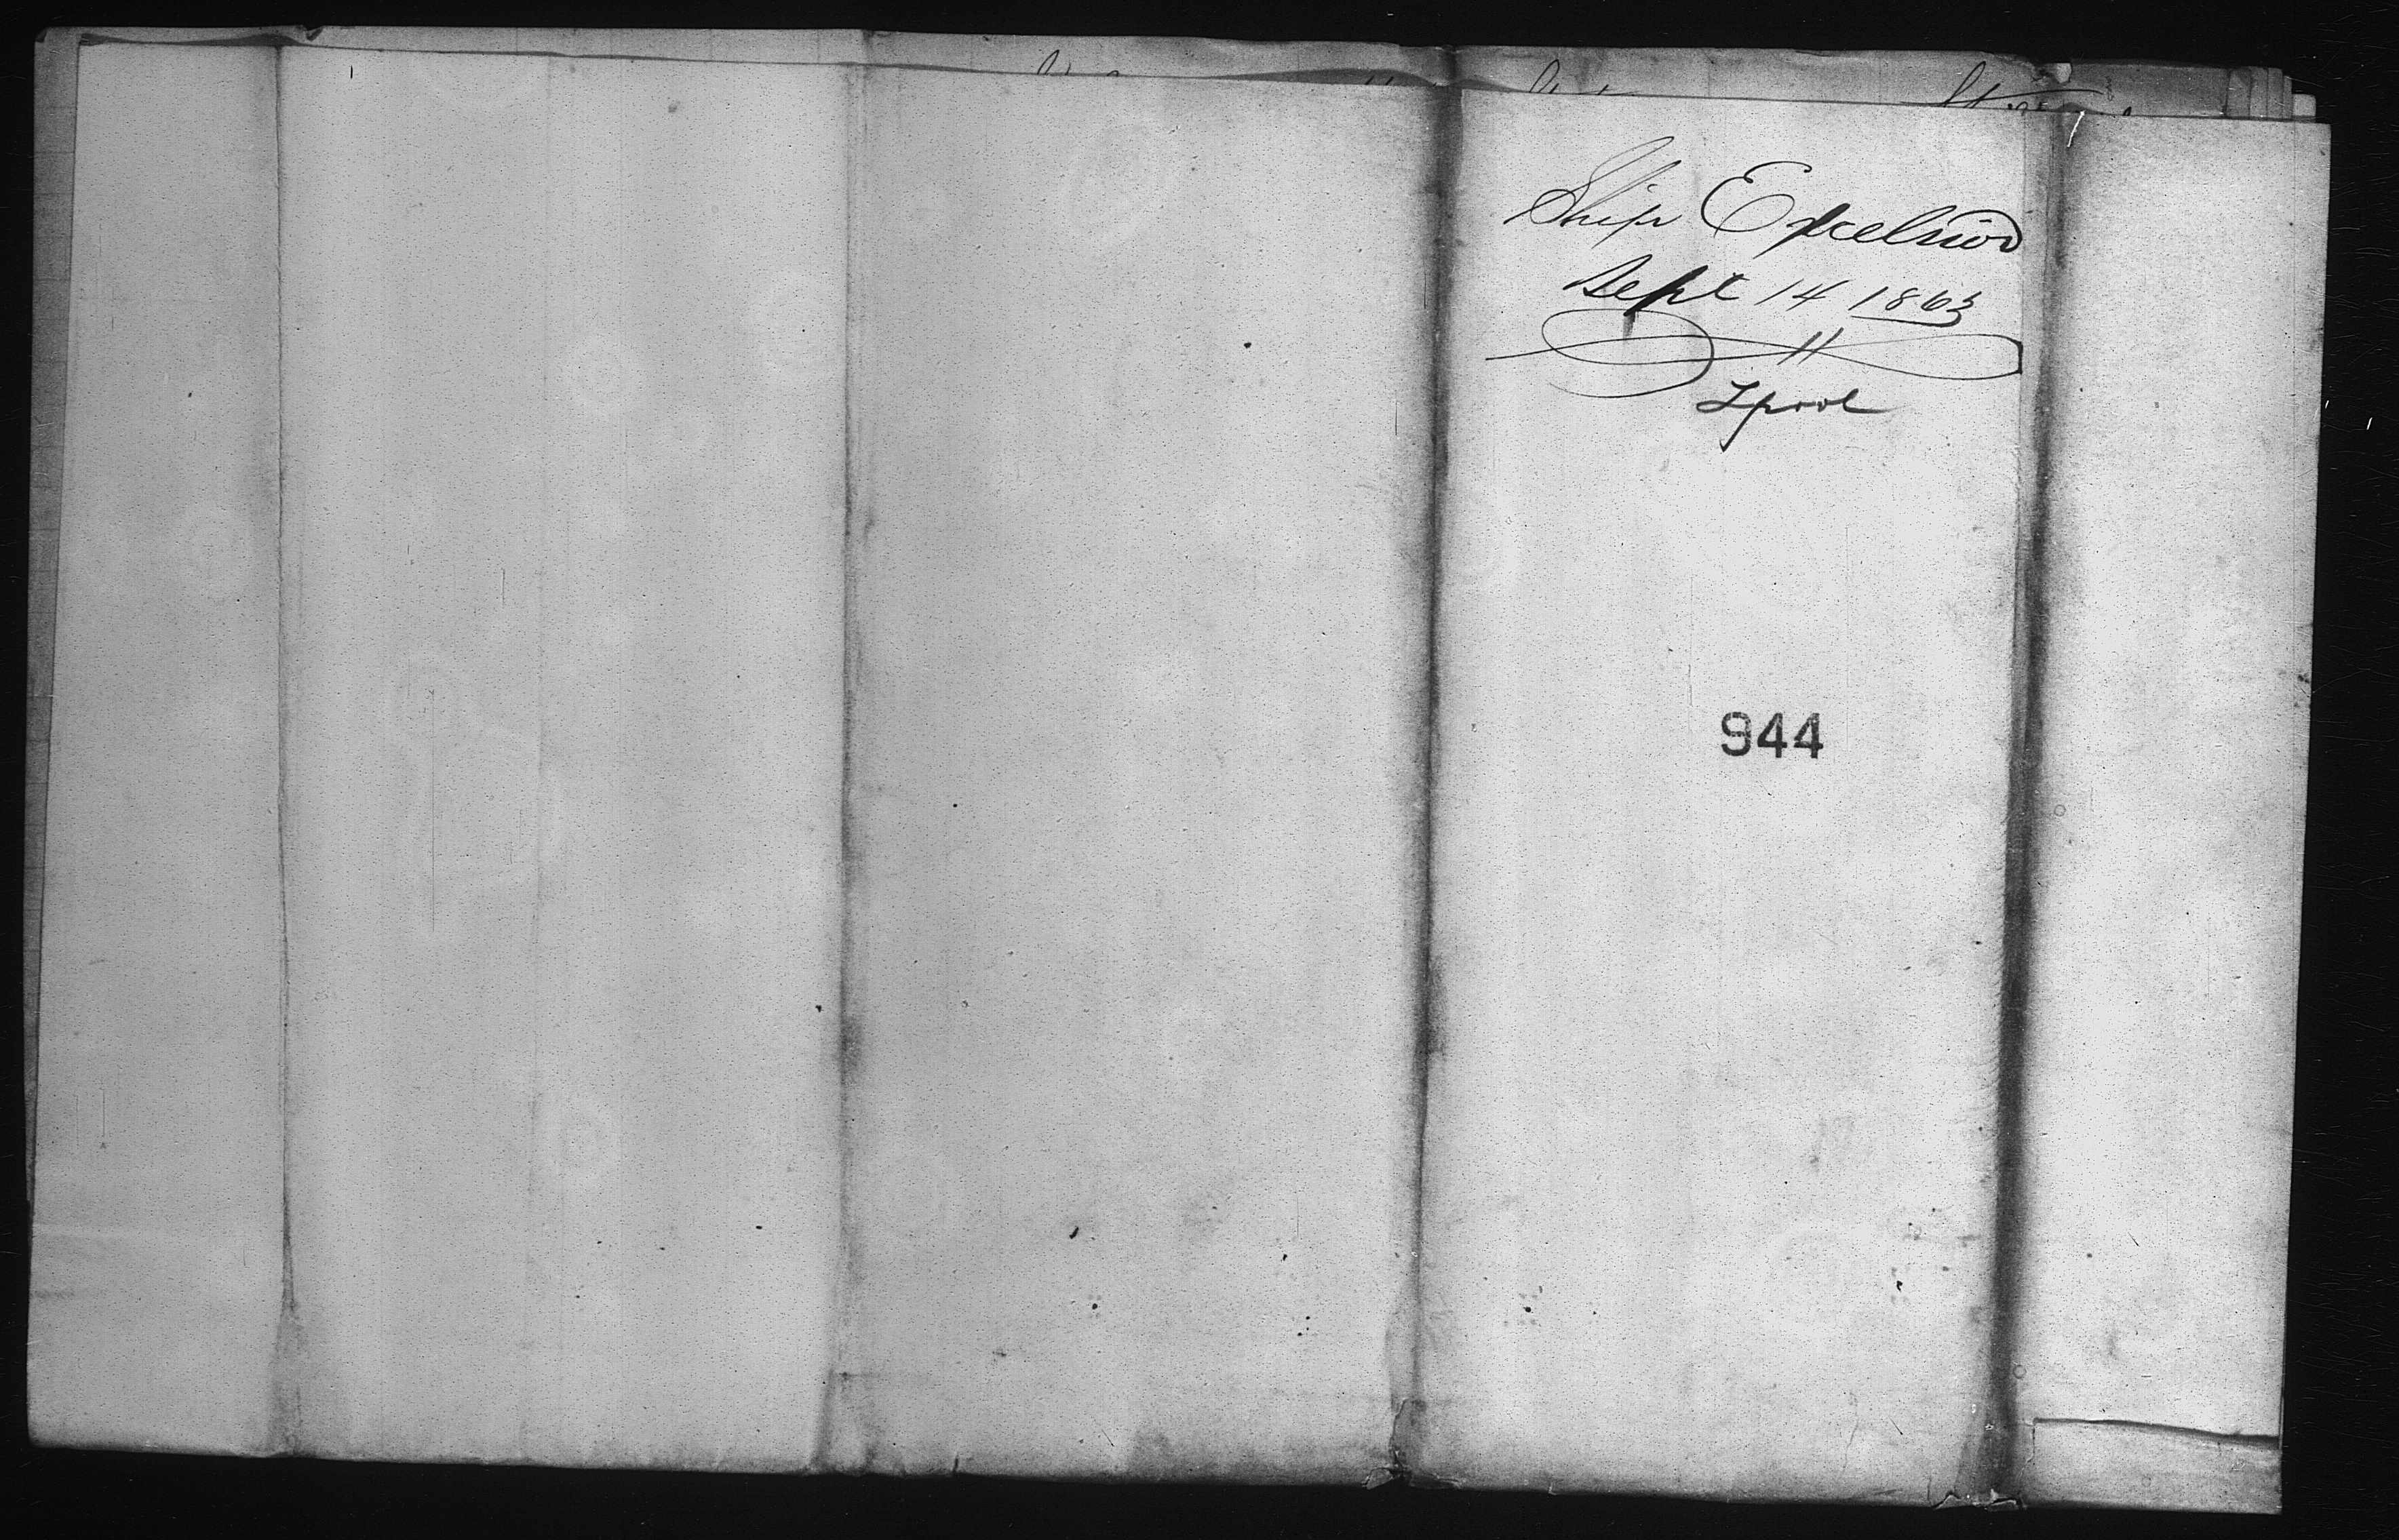 Ship Excelsior
Sept 14 1863
Lpool
944